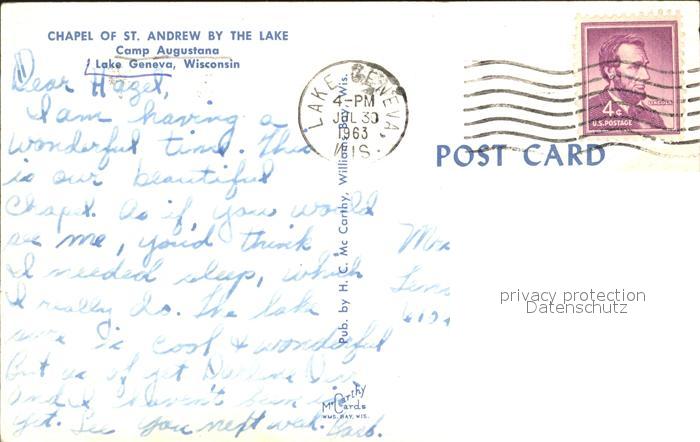 CHAPEL OF ST. ANDREW BY THE LAKE
Camp Augustana
Lake Geneva, Wisconsin
Dear Hazel,
I am having a
wonderful time. This
is our beautiful
Chapel. As if you would
see me, you'd think
I needed sleep, which
I really do. The lake
sure is cool & wonderful
But as of yet
and I haven't been in
yet. See you next week. Barb.
Pub. by H. C. Mc Carthy, Williams Bay, Wis.
McCarthy
Cards
WMS. BAY, WIS.
LAKE GENEVA,
4-PM
JUL 30
1963
WIS.
LINCOLN
4¢
U.S. POSTAGE
POST CARD
privacy protection
Datenschutz